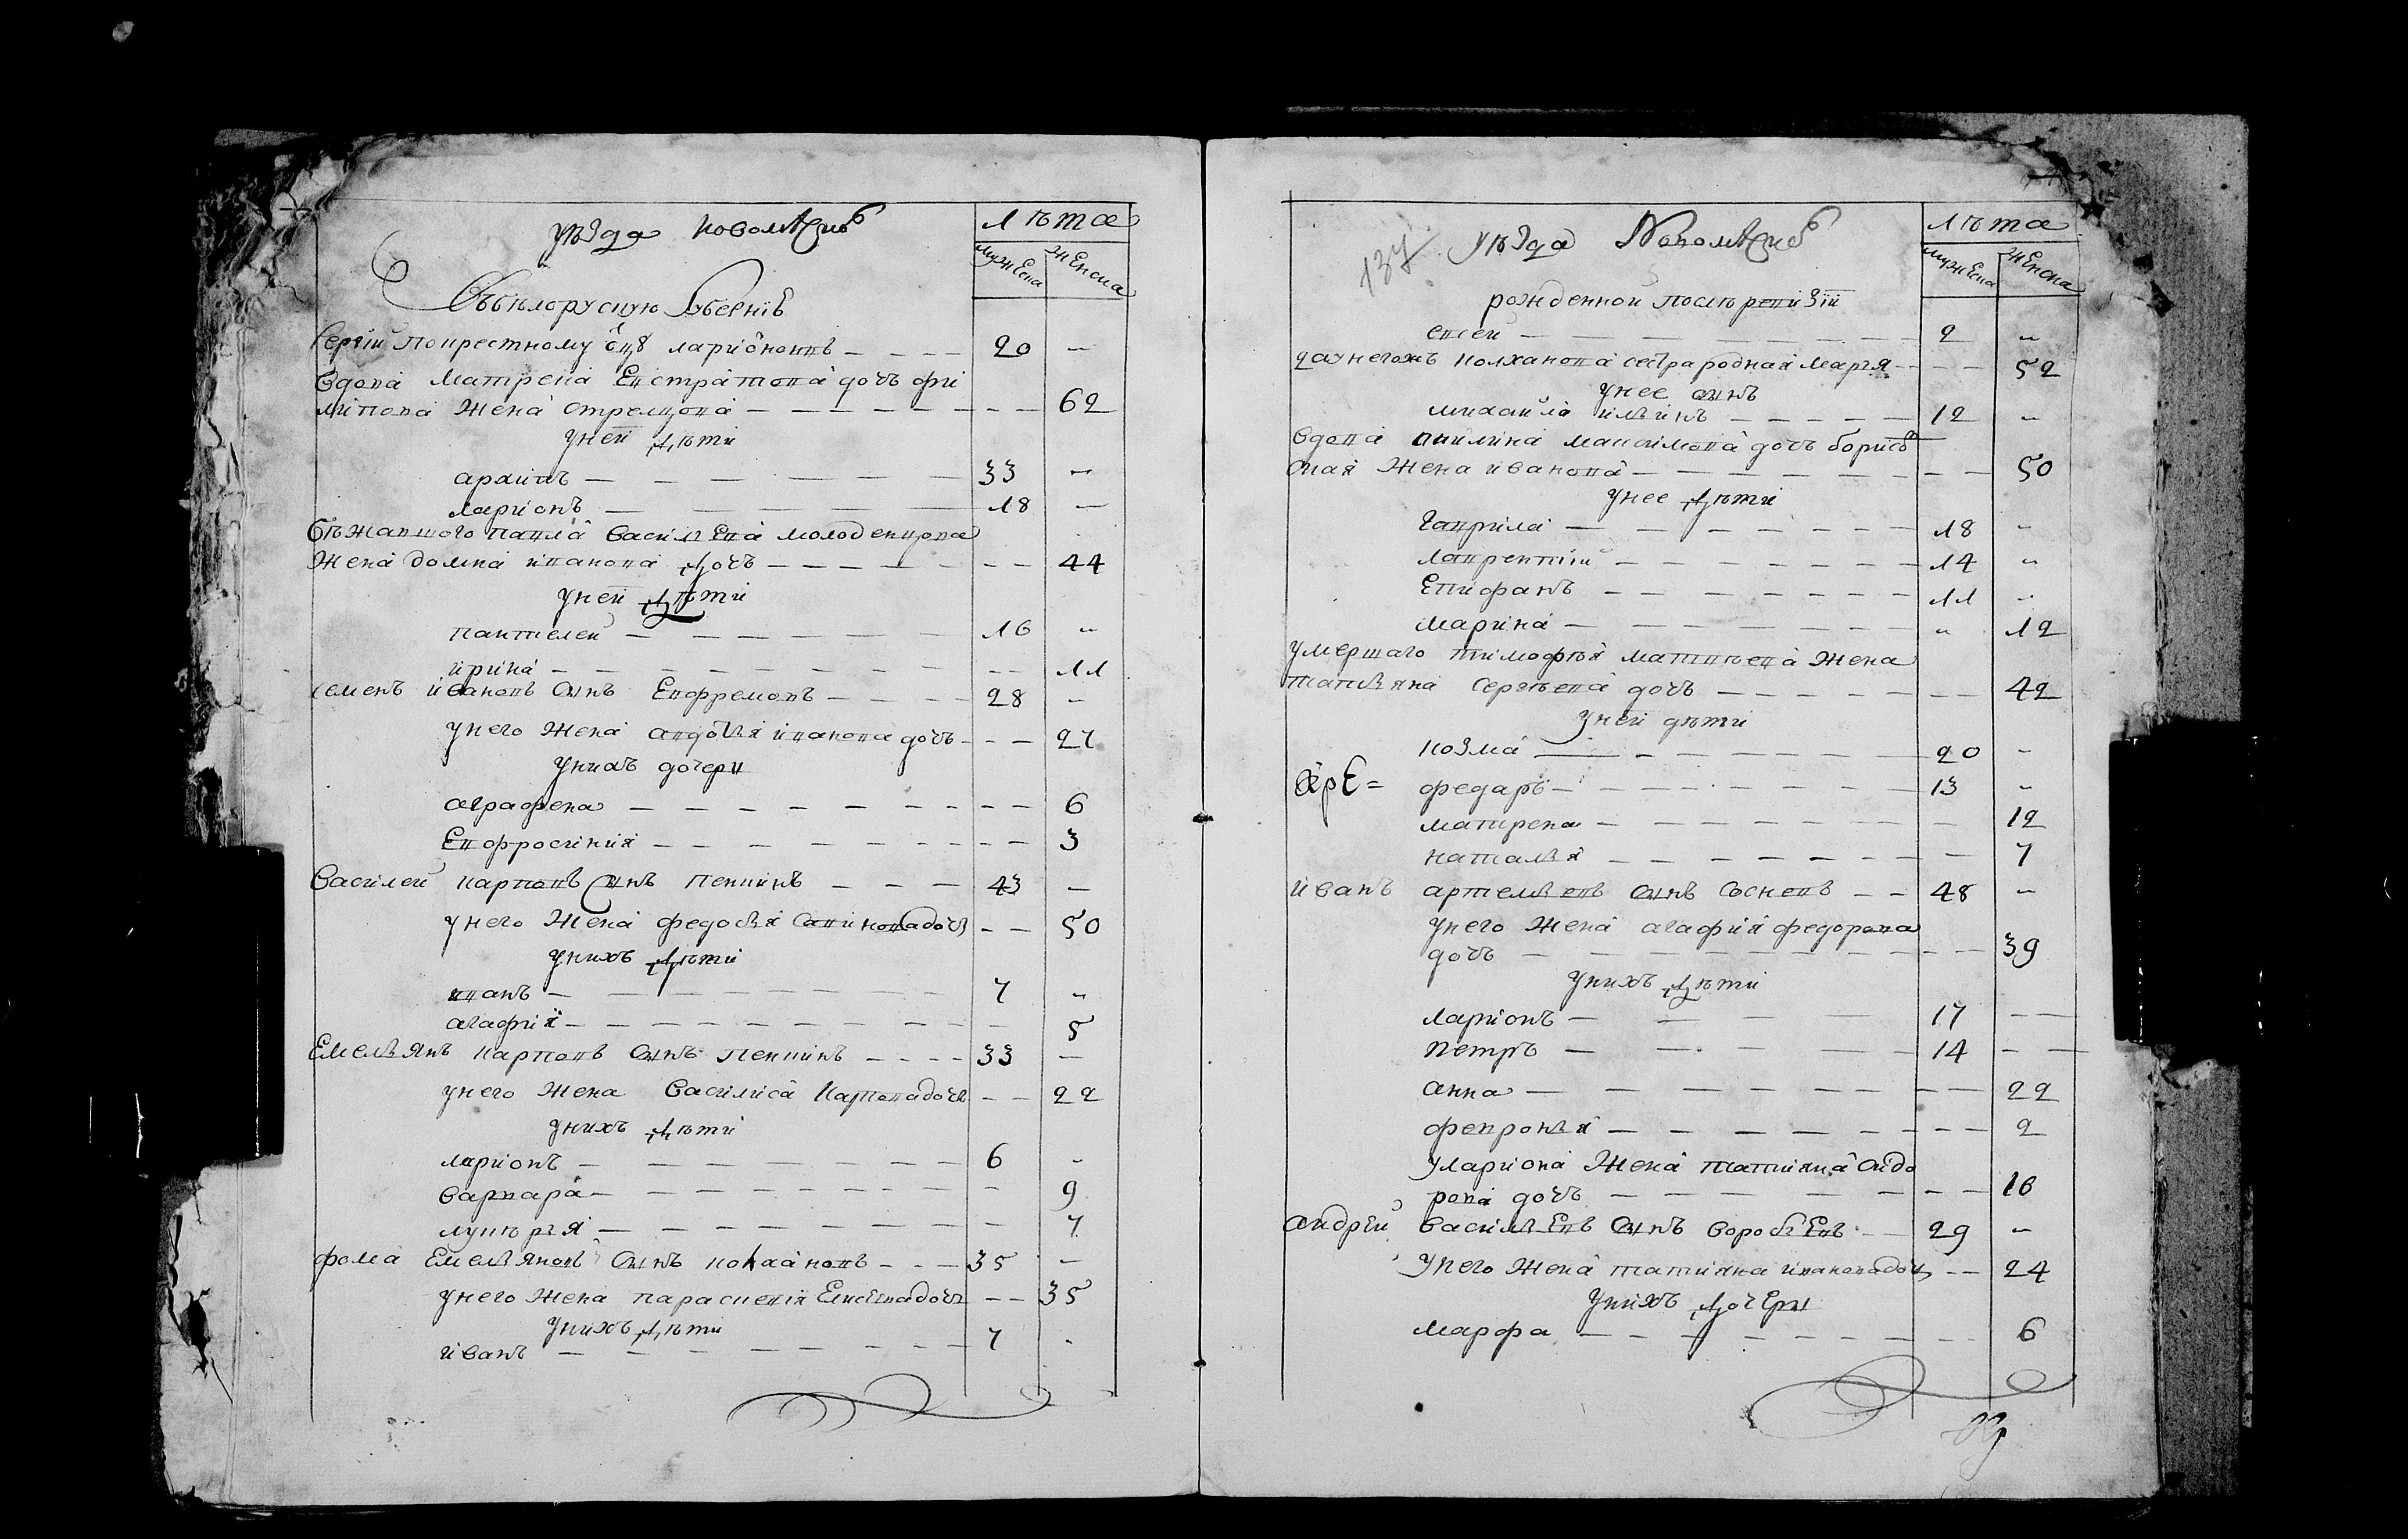 уѣзда
лѣта
мужеска
женска
Въбѣлорускую Губернїю
Сергій покрестному отцу ларіоновъ — — — — 20 —
вдова Матрена Евстратова дочь фи
липова жена стрелцова — — — 62
уней дѣти
архипъ — — — 33 —
ларионъ — — — 18 —
бѣжавшого павла василева молоденцова
жена домна иванова дочь — — — 44
уней дѣти
пантелей — — — 16 —
ирина — — — 11
семенъ ивановъ сынъ Евфремовъ — — — 28 —
унего жена авдотья иванова дочь — — — 27
унихъ дочери
аграфена — — — 6
Евфросиния — — — 3
Василей карповъ сынъ пенкинъ — — — 43 —
унего жена федосья савиновадочь — — 50
унихъ дѣти
иванъ — — — 7 —
агафия — — — 5
Емельянъ карповъ сынъ пенкинъ — — — 33 —
унего жена Василиса карповадочь — — 22
унихъ дѣти
ларионъ — — — 6 —
варвара — — — 9
лукѣрья — — — 7
фома Емельяновъ сынъ колхановъ — — — 35 —
унего жена парасковия дочь — — 35
унихъ дѣти
иванъ — — — 7 —
137
уѣзда
лѣта
мужеска
женска
рожденной послѣ ревизїи
2 —
даунегожъ колханова сестра родная Марья — — — 52
унее сынъ
михаила ильинъ — — — 12 —
вдова акилина максимова дочь борисов
ская жена иванова — — — 50
унее дѣти
гаврила — — — 18 —
лаврентій — — — 14 —
Епифанъ — — — 11 —
марина — — — 12
умершаго тимофѣя матвѣева жена
татьяна сергѣева дочь — — — 42
уней дѣти
козма — — — 20 —
федаръ — — — 13 —
матрена — — — 12
наталья — — — 7
иванъ артемьевъ сынъ — — 48 —
унего жена агафия федорова
дочь — — — 39
унихъ дѣти
ларионъ — — — 17 —
петръ — — — 14 —
анна — — — 22
февронья — — — 2
улариона жена татияна сидо
рова дочь — — — 16
андрей васильевъ сынъ воробьевъ — 29 —
унего жена татияна ивановадочь — — 24
унихъ дочери
марфа — — — 6